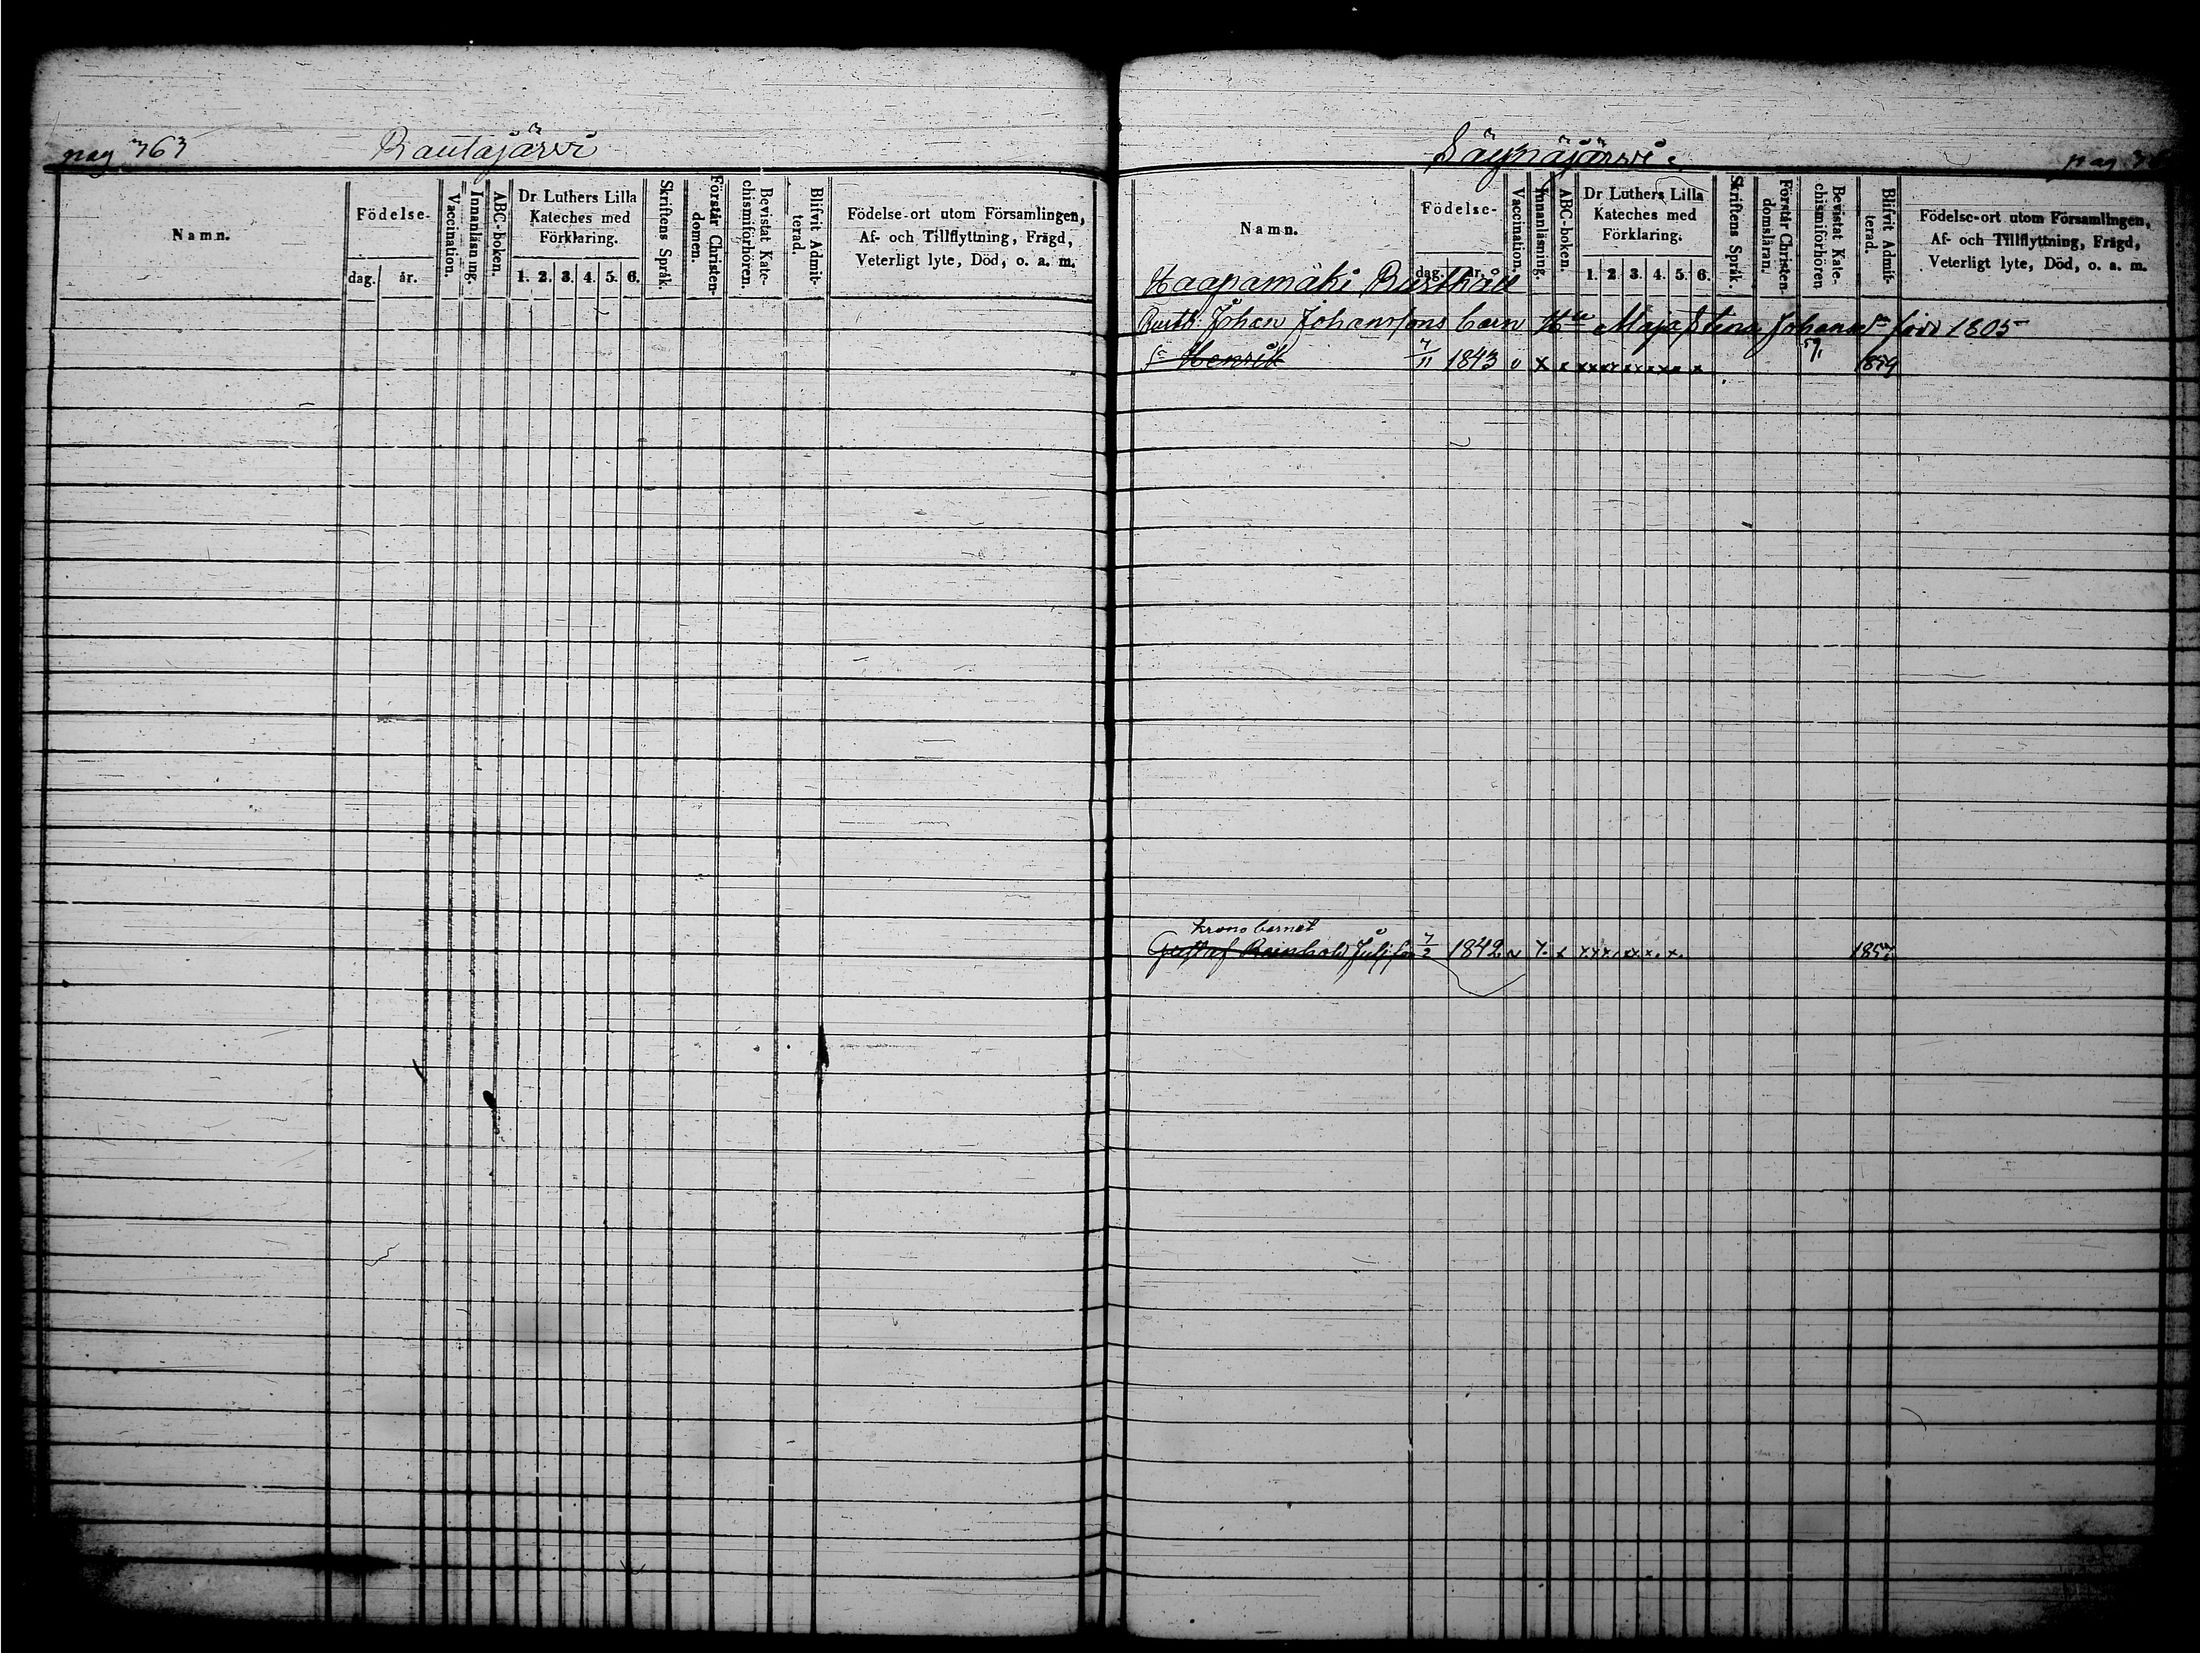 pag 363 Rautajärvi
Namn. Födelse- dag. år. Vaccination. Innanläsning. ABC-boken. Dr Luthers Lilla Kateches med Förklaring. 1. 2. 3. 4. 5. 6. Skriftens Språk. Förstår Christendomen. Bevistat Katechismiförhören. Blifvit Admitterad. Födelse-ort utom Församlingen, Af- och Tillflyttning, Frägd, Veterligt lyte, Död, o. a. m.
Säynäjärvi. pag
Namn. Födelse- dag. år. Vaccination. Innanläsning. ABC-boken. Dr Luthers Lilla Kateches med Förklaring. 1. 2. 3. 4. 5. 6. Skriftens Språk. Förstår Christendomsläran. Bevistat Katechismiförhören Blifvit Admitterad. Födelse-ort utom Församlingen, Af- och Tillflyttning, Frägd, Veterligt lyte, Död, o. a. m.
Haapamäki Rusthåll
Rusth: Johan Johanssons barn Hu Maja Stina Johansdr född 1805
S. Henrik 7/11 1843 v x x xx xx xx xx x 59, 1859
krono barnet
Gustaf Reinhold Julison 7/2 1842 x x xxx.xxx.x. 1857